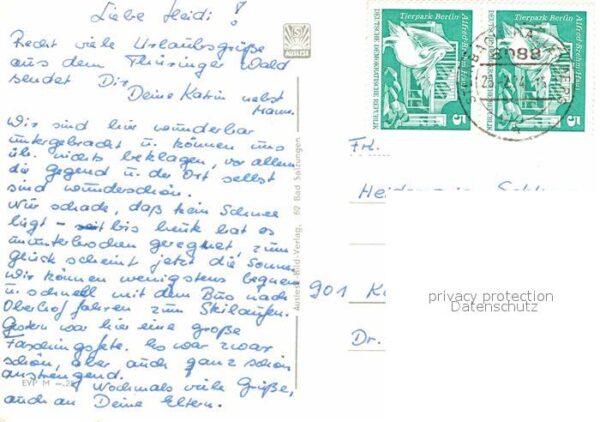 Liebe Heidi!
Recht viele Urlaubsgrüße
aus dem Thüringer Wald
sendet Dir
Deine Katrin nebst
Mann.
Wir sind hier wunderbar
untergebracht u. können uns
üb. nichts beklagen, vor allem
die Gegend u. der Ort selbst
sind wunderschön.
Nur schade, daß kein Schnee
liegt - seit bis heute hat es
ununterbrochen geregnet, zum
Glück scheint jetzt die Sonne.
Wir können wenigstens bequem
u. schnell mit dem Bus nach
Oberhof fahren zum Skilaufen.
Gestern war hier eine große
Faschingsfete. Es war zwar
schön, aber auch ganz schön
anstrengend.
Nochmals viele Grüße,
auch an Deine Eltern.
EVP M -.25
AUSLESE
Auslese-Bild-Verlag, 62 Bad Salzungen
Tierpark Berlin
Alfred-Brehm-Haus
DEUTSCHE DEMOKRATISCHE REPUBLIK
5
Tierpark Berlin
Alfred-Brehm-Haus
DEUTSCHE DEMOKRATISCHE REPUBLIK
5
6088
Frl.
901
Dr.
privacy protection
Datenschutz